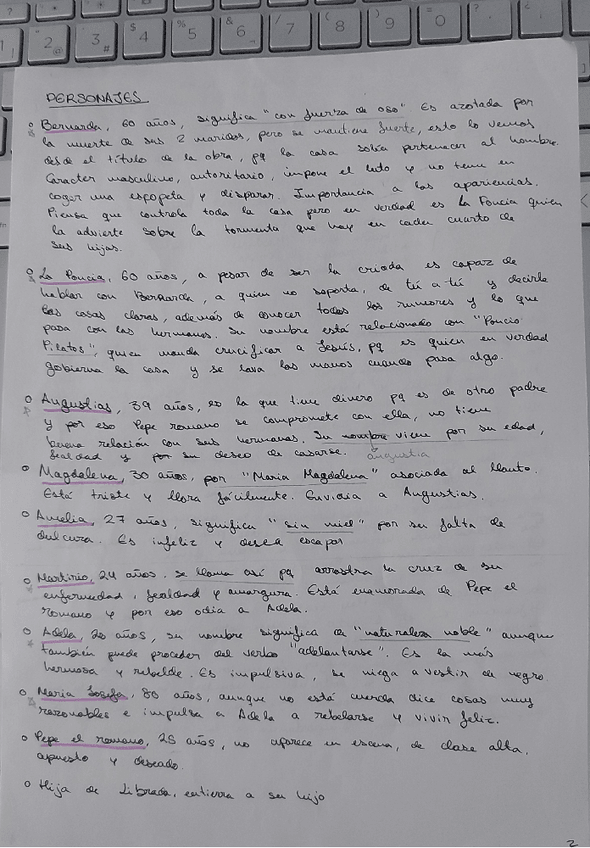 PERSONAJES
Bernarda, 60 años, significa "con fuerza de oso" Es azotada por
la muerte de sus 2 maridos, pero se mantiene fuerte, esto lo vemos
desde el título de la obra, pq la casa solía pertenecer al hombre.
Caracter masculino, autoritario, impone el luto y no teme en
coger una escopeta y disparar. Importancia a las apariencias.
Piensa que controla toda la casa pero en verdad es La Poncia quien
la advierte sobre la tormenta que hay en cada cuarto de
sus hijas.
La Poncia, 60 años, a pesar de ser la criada es capaz de
hablar con Bernarda, a quien no soporta, de tú a tú y decirle
las cosas claras, además de conocer todos los rumores y lo que
pasa con las hermanas. Su nombre está relacionado con "Poncio
Pilatos", quien manda crucificar a Jesús, pq es quien en verdad
gobierna la casa y se lava las manos cuando pasa algo.
Augustias, 39 años, es la que tiene dinero pq es de otro padre
y por eso Pepe romano se compromete con ella, no tiene
buena relación con sus hermanas. Su nombre viene por su edad,
fealdad y por su deseo de casarse. angustia
Magdalena, 30 años, por "Maria Magdalena" asociada al llanto.
Está triste y llora fácilmente. Envidia a Augustias.
Amelia, 27 años, significa "sin miel" por su falta de
dulzura. Es infeliz y desea escapar
Martirio, 24 años. se llama así pq arrastra la cruz de su
enfermedad, fealdad y amargura. Está enamorada de Pepe el
romano y por eso odia a Adela.
Adela, 20 años, su nombre significa de "naturaleza noble" aunque
también puede proceder del verbo "adelantarse". Es la más
hermosa y rebelde. Es impulsiva, se niega a vestir de negro.
Maria Josefa, 80 años, aunque no está cuerda dice cosas muy
razonables e impulsa a Adela a rebelarse y vivir feliz.
Pepe el romano, 25 años, no aparece en escena, de clase alta.
apuesto y deseado.
Hija de Librada, entierra a su hijo
2